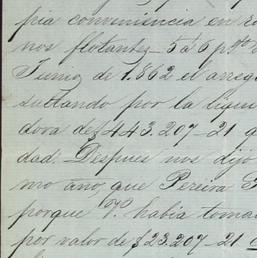 pia conveniencia en
nos flotantes 5 á 6 p.
Junio de 1.862 el arreg
sultando por la liqui
dora de $443.207-21 q
dad. Despues nos dijo
mo año, que Pereira
porque V. habia toma
por valor de $23.207-21